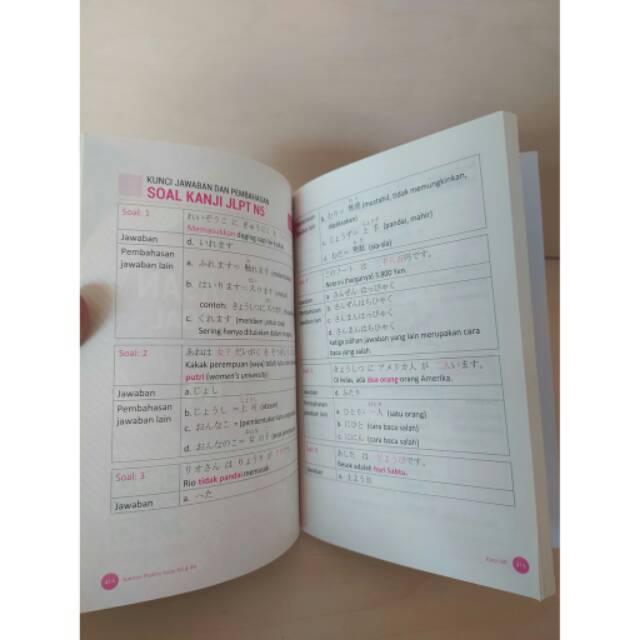 KUNCI JAWABAN DAN PEMBAHASAN
SOAL KANJI JLPT N5
Soal: 1
れいぞうこ に ぎゅうにく を
Memasukkan daging sapi ke kulkas.
Jawaban
d. いれます
Pembahasan jawaban lain
a. ふれます= 触れます
b. はいります= 入ります
contoh: きょうしつに入ります
c. くれます (memberi untuk saya)
Sering hanya dituliskan dalam
Soal: 2
あねは 女子 だいがく を
Kakak perempuan (saya)
putri (women's university)
Jawaban
a. じょし
Pembahasan jawaban lain
b. じょうし = 上司 (atasan)
c. おんなこ =
d. おんなのこ= 女の子
Soal: 3
リオさん は りょうり が
Rio tidak pandai memasak
Jawaban
a. へた
414
b. むり= 無理 (mustahil, tidak memungkinkan,
dipaksakan)
c. じょうず= 上手 (pandai, mahir)
d. むだ= 無駄 (sia-sia)
このノート は 円です。
3.800 Yen.
a. さんぜん はっぴゃく
b. さんぜんはちひゃく
c. さんまんはっぴゃく
d. さんまんはちひゃく
Ketiga pilihan jawaban yang lain merupakan cara
baca yang salah.
きょうしつ に アメリカ人 が 二人います。
Di kelas, ada dua orang orang Amerika.
Jawaban
d. ふたり
a. ひとり= 一人 (satu orang)
b. にひと (cara baca salah)
c. ににん (cara baca salah)
あした は どようびです。
Besok adalah hari Sabtu.
Jawaban
a. 土よう日
415